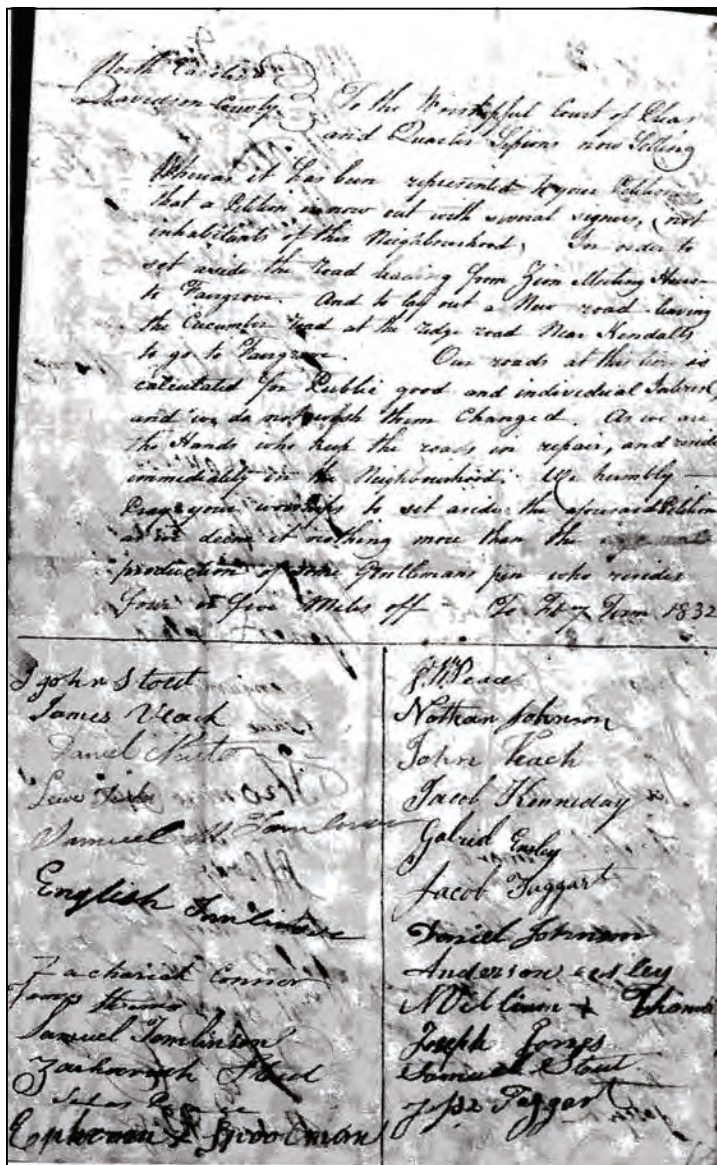 North Carolina
Davidson County To the Worshipful Court of Pleas
and Quarter Sessions now Setting
Whereas it has been represented to your Petitioners
that a Petition is now out with several signers, not
inhabitants of this Neighbourhood, In order to
set aside the road leading from Zion Meeting House
to Fairgrove. And to lay out a New road leaving
the Cucumber road at the ridge road Near Kendalls
to go to Fairgrove. Our roads at this time is
calculated for Public good and individual Interest,
and we do not wish them Changed. As we are
the Hands who keep the roads in repair, and reside
immediately in the Neighbourhood; We humbly
Pray your worships to set aside the aforesaid Petition
as we deem it nothing more than the
production of some Gentlemans pen who resides
four or five Miles off - To Term 1832
John Stout
James Veach
Daniel
Samuel Tomlinson
English Tomlinson
Zachariah Connor
Samuel Tomlinson
Ephraim
Peace
Nathan Johnson
John Veach
Jacob Kenneday
Gabriel Ensley
Jacob Taggart
Daniel Johnson
Anderson
William Thomas
Joseph Jones
Samuel Stout
Jesse Taggart